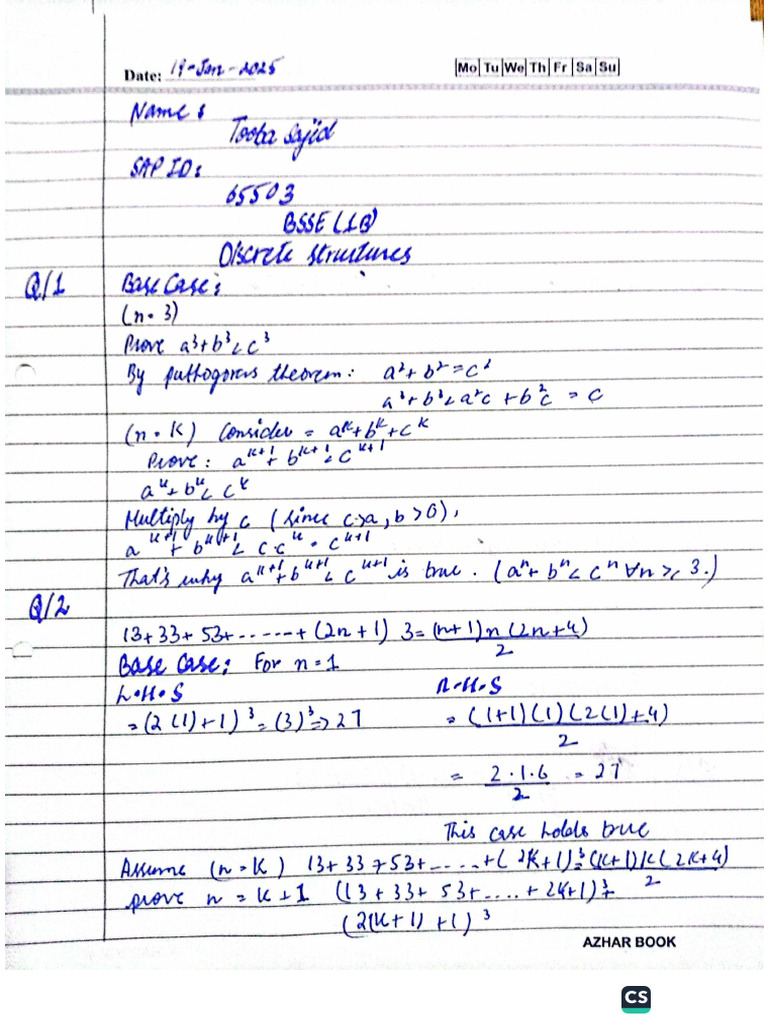 Date: 19-Jan-2025 Mo Tu We Th Fr Sa Su
Name:
Tooba Sajid
SAP ID:
65503
BSSE (1B)
Discrete structures
Q/1 Base Case:
(n=3)
Prove a³+b³<c³
By puthogorus theorem: a²+b²=c²
a³+b³<a²c+b²c = c
(n=K) Consider = aᵏ+bᵏ+cᵏ
Prove: aᵏ⁺¹+bᵏ⁺¹<cᵏ⁺¹
aᵏ+bᵏ<cᵏ
Multiply by c (since c>a,b>0),
aᵏ⁺¹+bᵏ⁺¹<c·cᵏ=cᵏ⁺¹
That's why aᵏ⁺¹+bᵏ⁺¹<cᵏ⁺¹ is true. (aⁿ+bⁿ<cⁿ ∀n≥3.)
Q/2
13+33+53+......+(2n+1) 3=(n+1)n(2n+4)/2
Base Case: For n=1
L.H.S R.H.S
=(2(1)+1)³=(3)³=>27 =(1+1)(1)(2(1)+4)/2
=2·1·6/2=27
This case holds true
Assume (n=K) 13+33+53+.....+(2K+1)³=(K+1)K(2K+4)/2
prove n=K+1 (13+33+53+....+2K+1)³+
(2(K+1)+1)³
AZHAR BOOK
CS